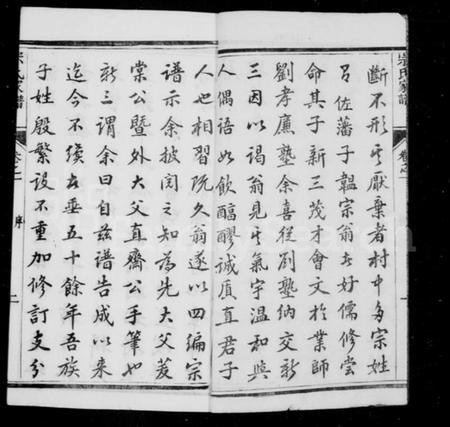 斷不形其厭棄者村中多宗姓
呂佐藩子韞宗翁尤好儒修嘗
命其子新三茂才會文於業師
劉孝廉塾余喜從劉塾納交新
三因以謁翁見其氣宇溫和與
人偶語如飲醇醪誠厚直君子
人也相習既久翁遂以四編宗
譜示余披閱之知為先大父菱
棠公暨外大父直齋公手筆也
新三謂余曰自茲譜告成以來
迄今不續者垂五十餘年吾族
子姓殷繁設不重加修訂支分
宗氏家譜
卷之一
序
二
宗氏家譜